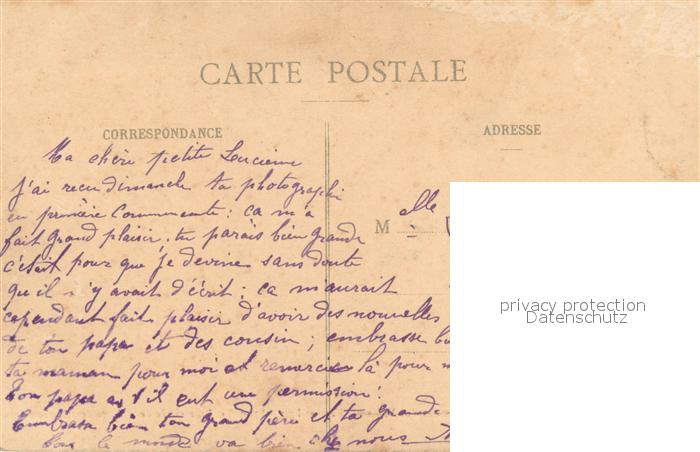 CARTE POSTALE
CORRESPONDANCE
ADRESSE
Ma chère petite Lucienne
j'ai recu dimanche ta photographie
en première communiante : ça m'a
fait grand plaisir, tu parais bien grande
c'était pour que je devine sans doute
qu'il n'y avait d'écrit : ça m'aurait
cependant fait plaisir d'avoir des nouvelles
de ton papa et des cousin ; embrasse
ta maman pour moi et remercie là pour
Ton papa a t'il eut une permission :
Embrasse bien ton grand père et ta grande
Tout le monde va bien chez nous
M elle
privacy protection
Datenschutz